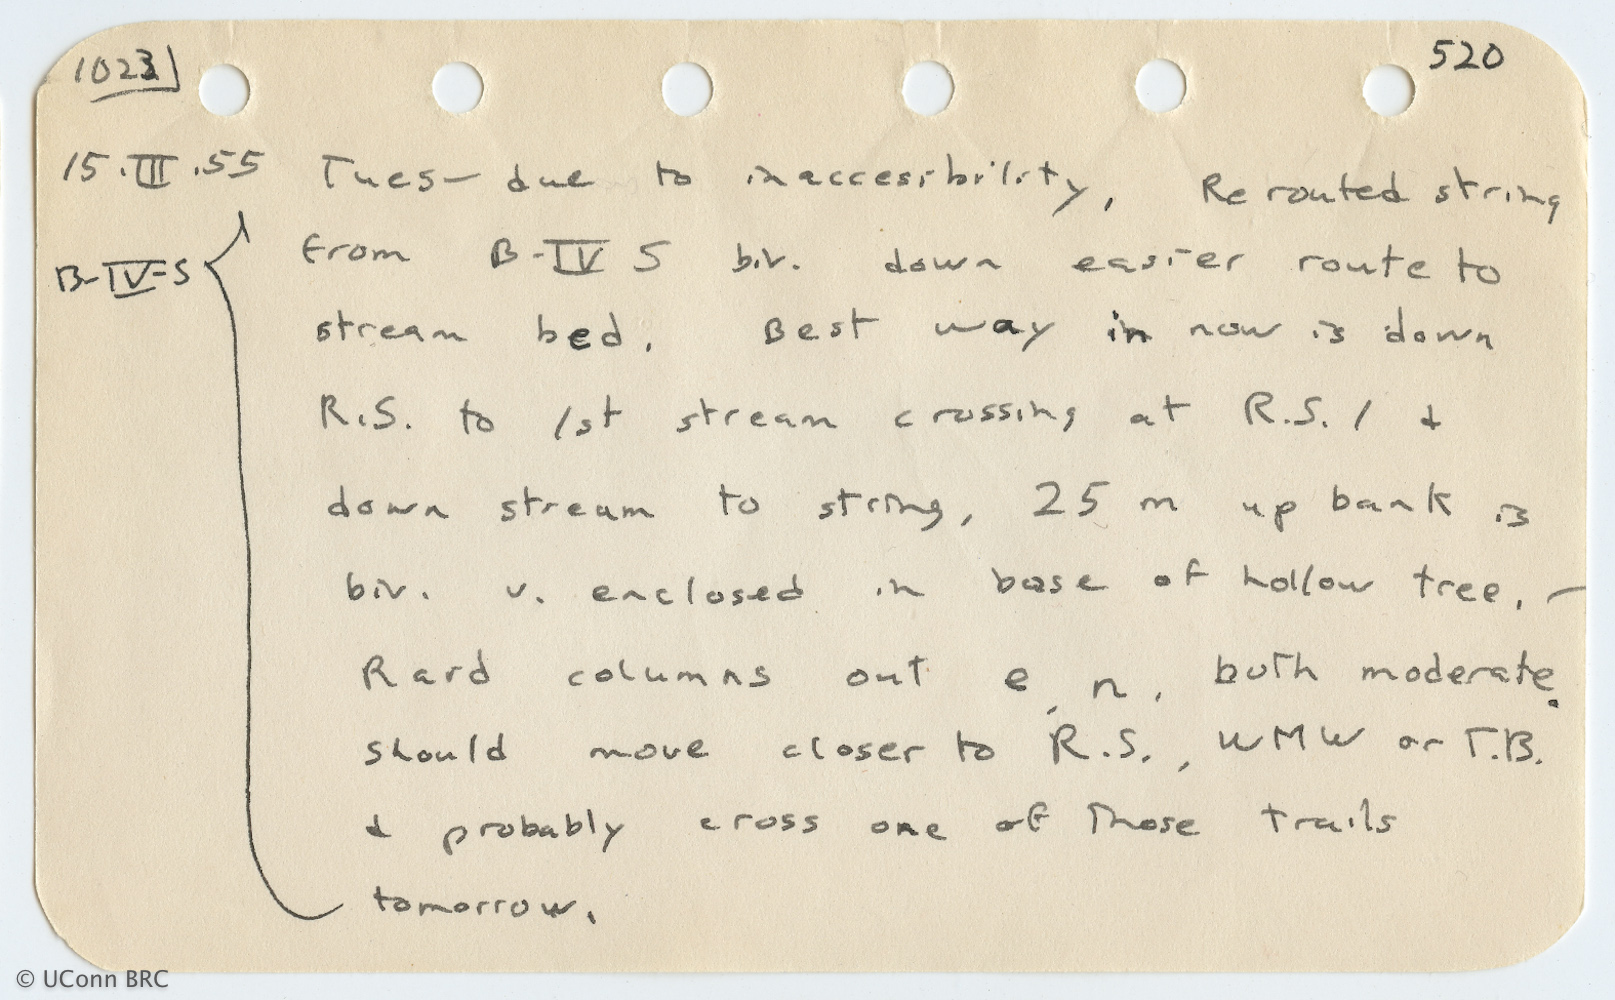 1023 520
15.III.55 Tues— due to inaccessibility, Rerouted string
B-IV-S from B-IV S biv. down easier route to
stream bed. Best way in now is down
R.S. to 1st stream crossing at R.S. 1 &
down stream to string, 25 m up bank is
biv. v. enclosed in base of hollow tree. —
Raid columns out e, n, both moderate.
should move closer to R.S., WMW or T.B.
& probably cross one of those trails
tomorrow.
© UConn BRC